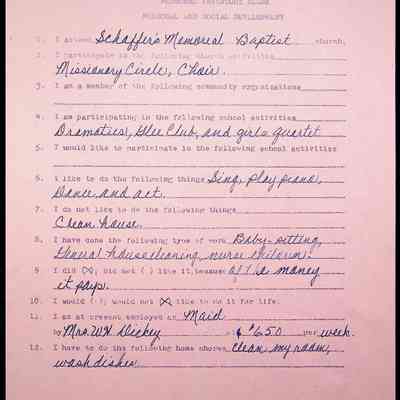 PERSONAL INVENTORY BLANK
PERSONAL AND SOCIAL DEVELOPMENT
1. I attend Schaffer's Memorial Baptist church.
2. I participate in the following church activities
Missionary Circle, Choir.
3. I am a member of the following community organizations
4. I am participating in the following school activities
Dramatics, Glee Club, and girls quartet
5. I would like to participate in the following school activities
6. I like to do the following things Sing, play piano,
Dance and act.
7. I do not like to do the following things
Clean house.
8. I have done the following type of work Baby-sitting,
General housecleaning, nurse children.
9. I did (X) did not ( ) like it, because of the money
it pays.
10. I would ( ) would not (X) like to do it for life.
11. I am at present employed as Maid
by Mrs. W.N. Dickey at $6.50 per week.
12. I have to do the following home chores clean my room,
wash dishes